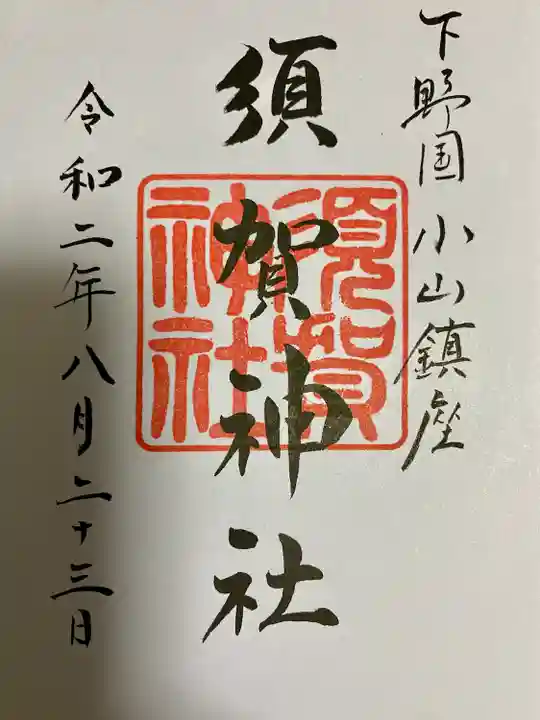 下野国小山鎮座
須賀神社
須賀
神社
令和二年八月二十三日